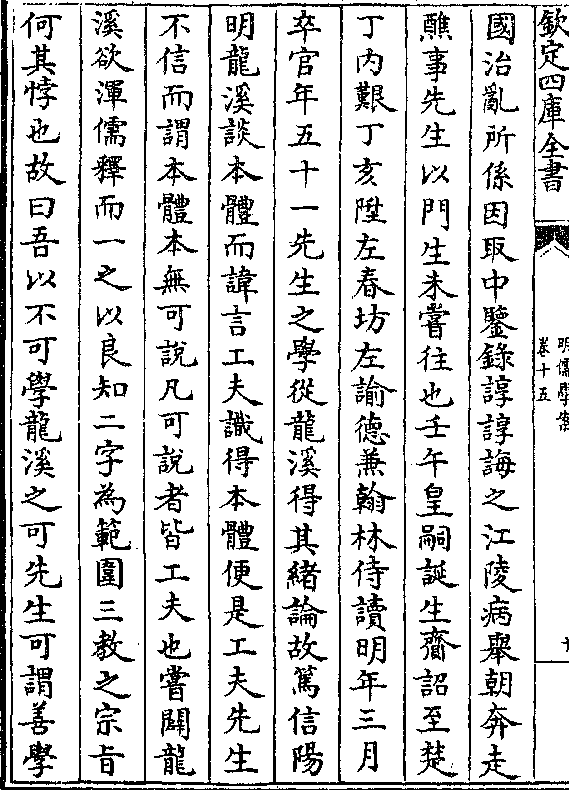 欽定四庫全書
明儒學案
卷十五
國治亂所係因取中鑒錄諄諄誨之江陵病舉朝奔走
醮事先生以門生未嘗往也壬午皇嗣誕生齎詔至楚
丁内艱丁亥陞左春坊左諭德兼翰林侍讀明年三月
卒官年五十一先生之學從龍溪得其緒論故篤信陽
明龍溪談本體而諱言工夫識得本體便是工夫先生
不信而謂本體本無可說凡可說者皆工夫也嘗闢龍
溪欲渾儒釋而一之以良知二字為範圍三教之宗旨
何其悖也故曰吾以不可學龍溪之可先生可謂善學